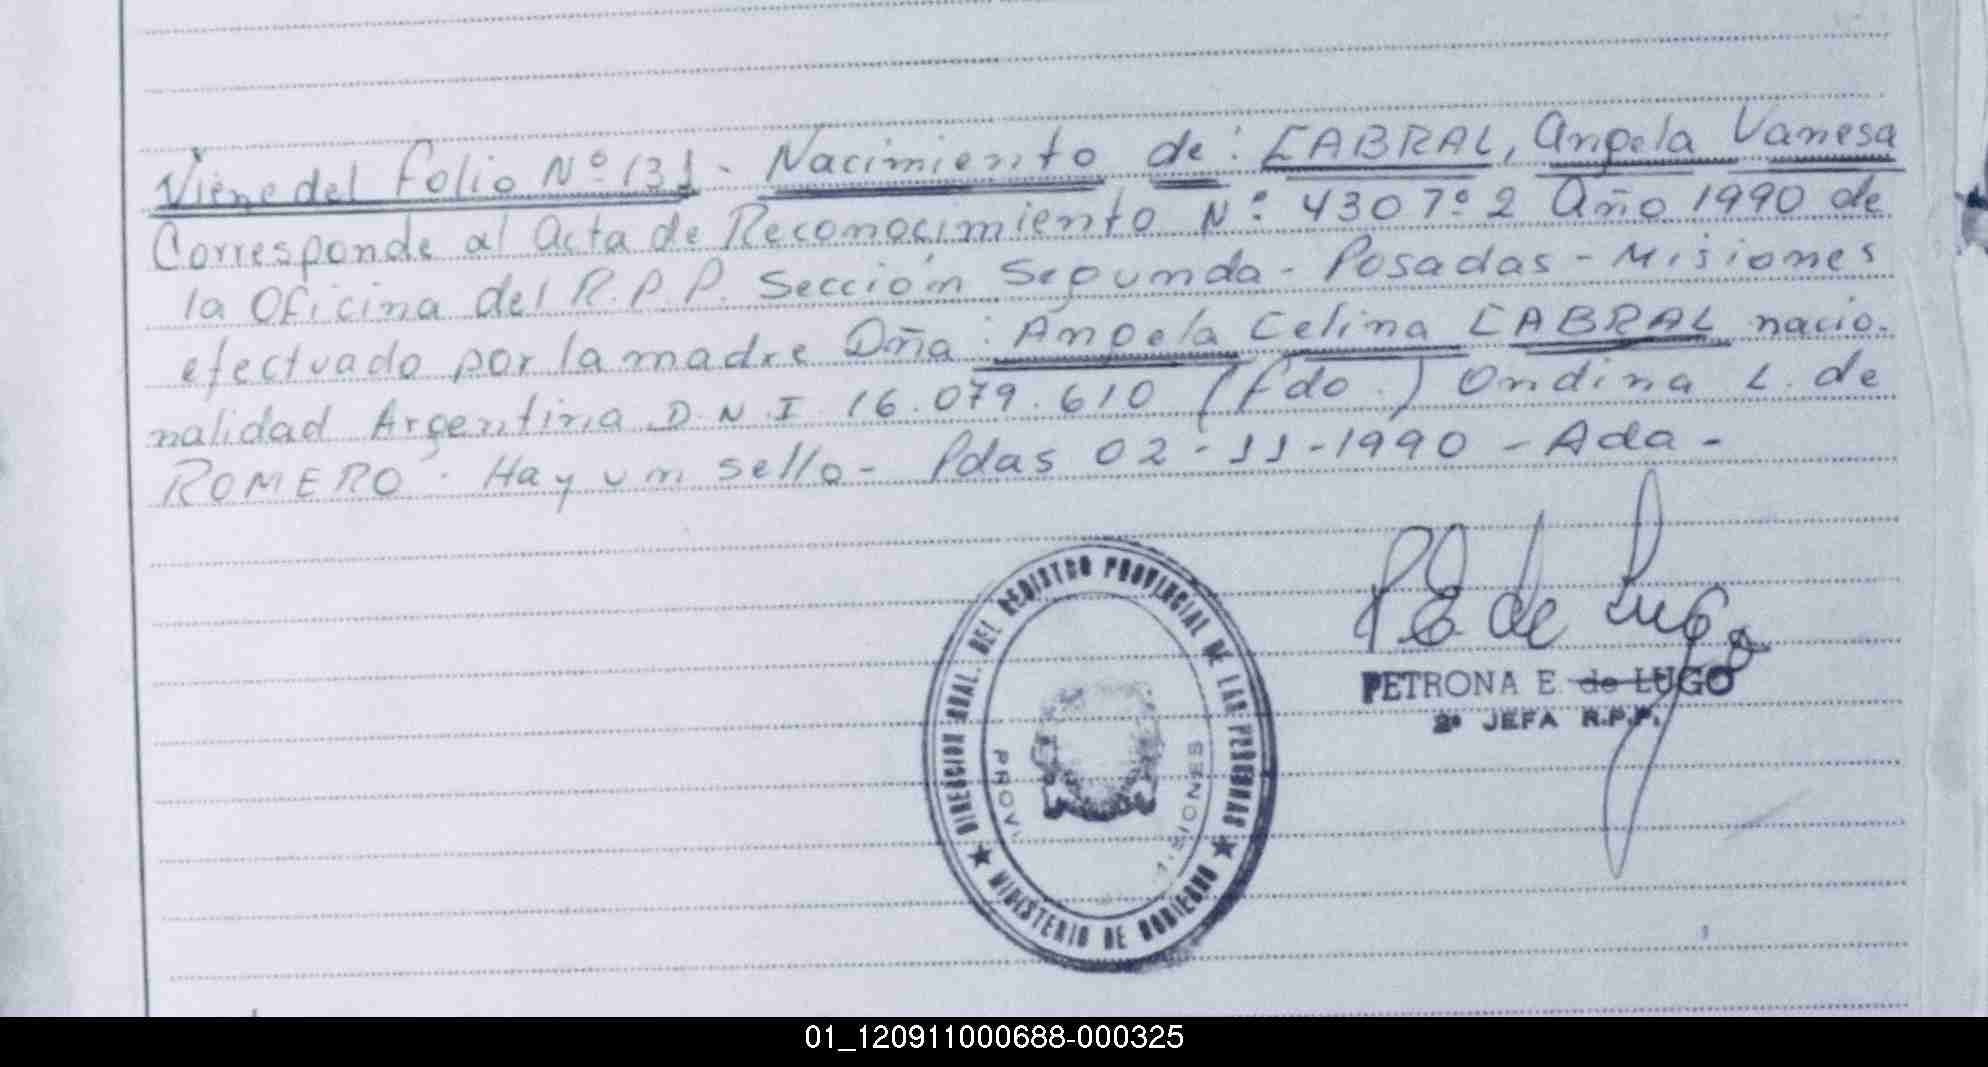 Viene del Folio Nº 131 - Nacimiento de: CABRAL, Angela Vanesa
Corresponde al Acta de Reconocimiento Nº 4307º2 Año 1990 de
la Oficina del R.P.P. Sección Segunda - Posadas - Misiones
efectuado por la madre Dña: Angela Celina CABRAL nacio-
nalidad Argentina D.N.I 16.079.610 (Fdo.) Ondina L. de
ROMERO. Hay un sello - Pdas 02-11-1990 - Ada -
P E de Lugo
PETRONA E. de LUGO
2º JEFA R.P.P.
DIRECCION GRAL. DEL REGISTRO PROVINCIAL DE LAS PERSONAS
MINISTERIO DE GOBIERNO
01_120911000688-000325